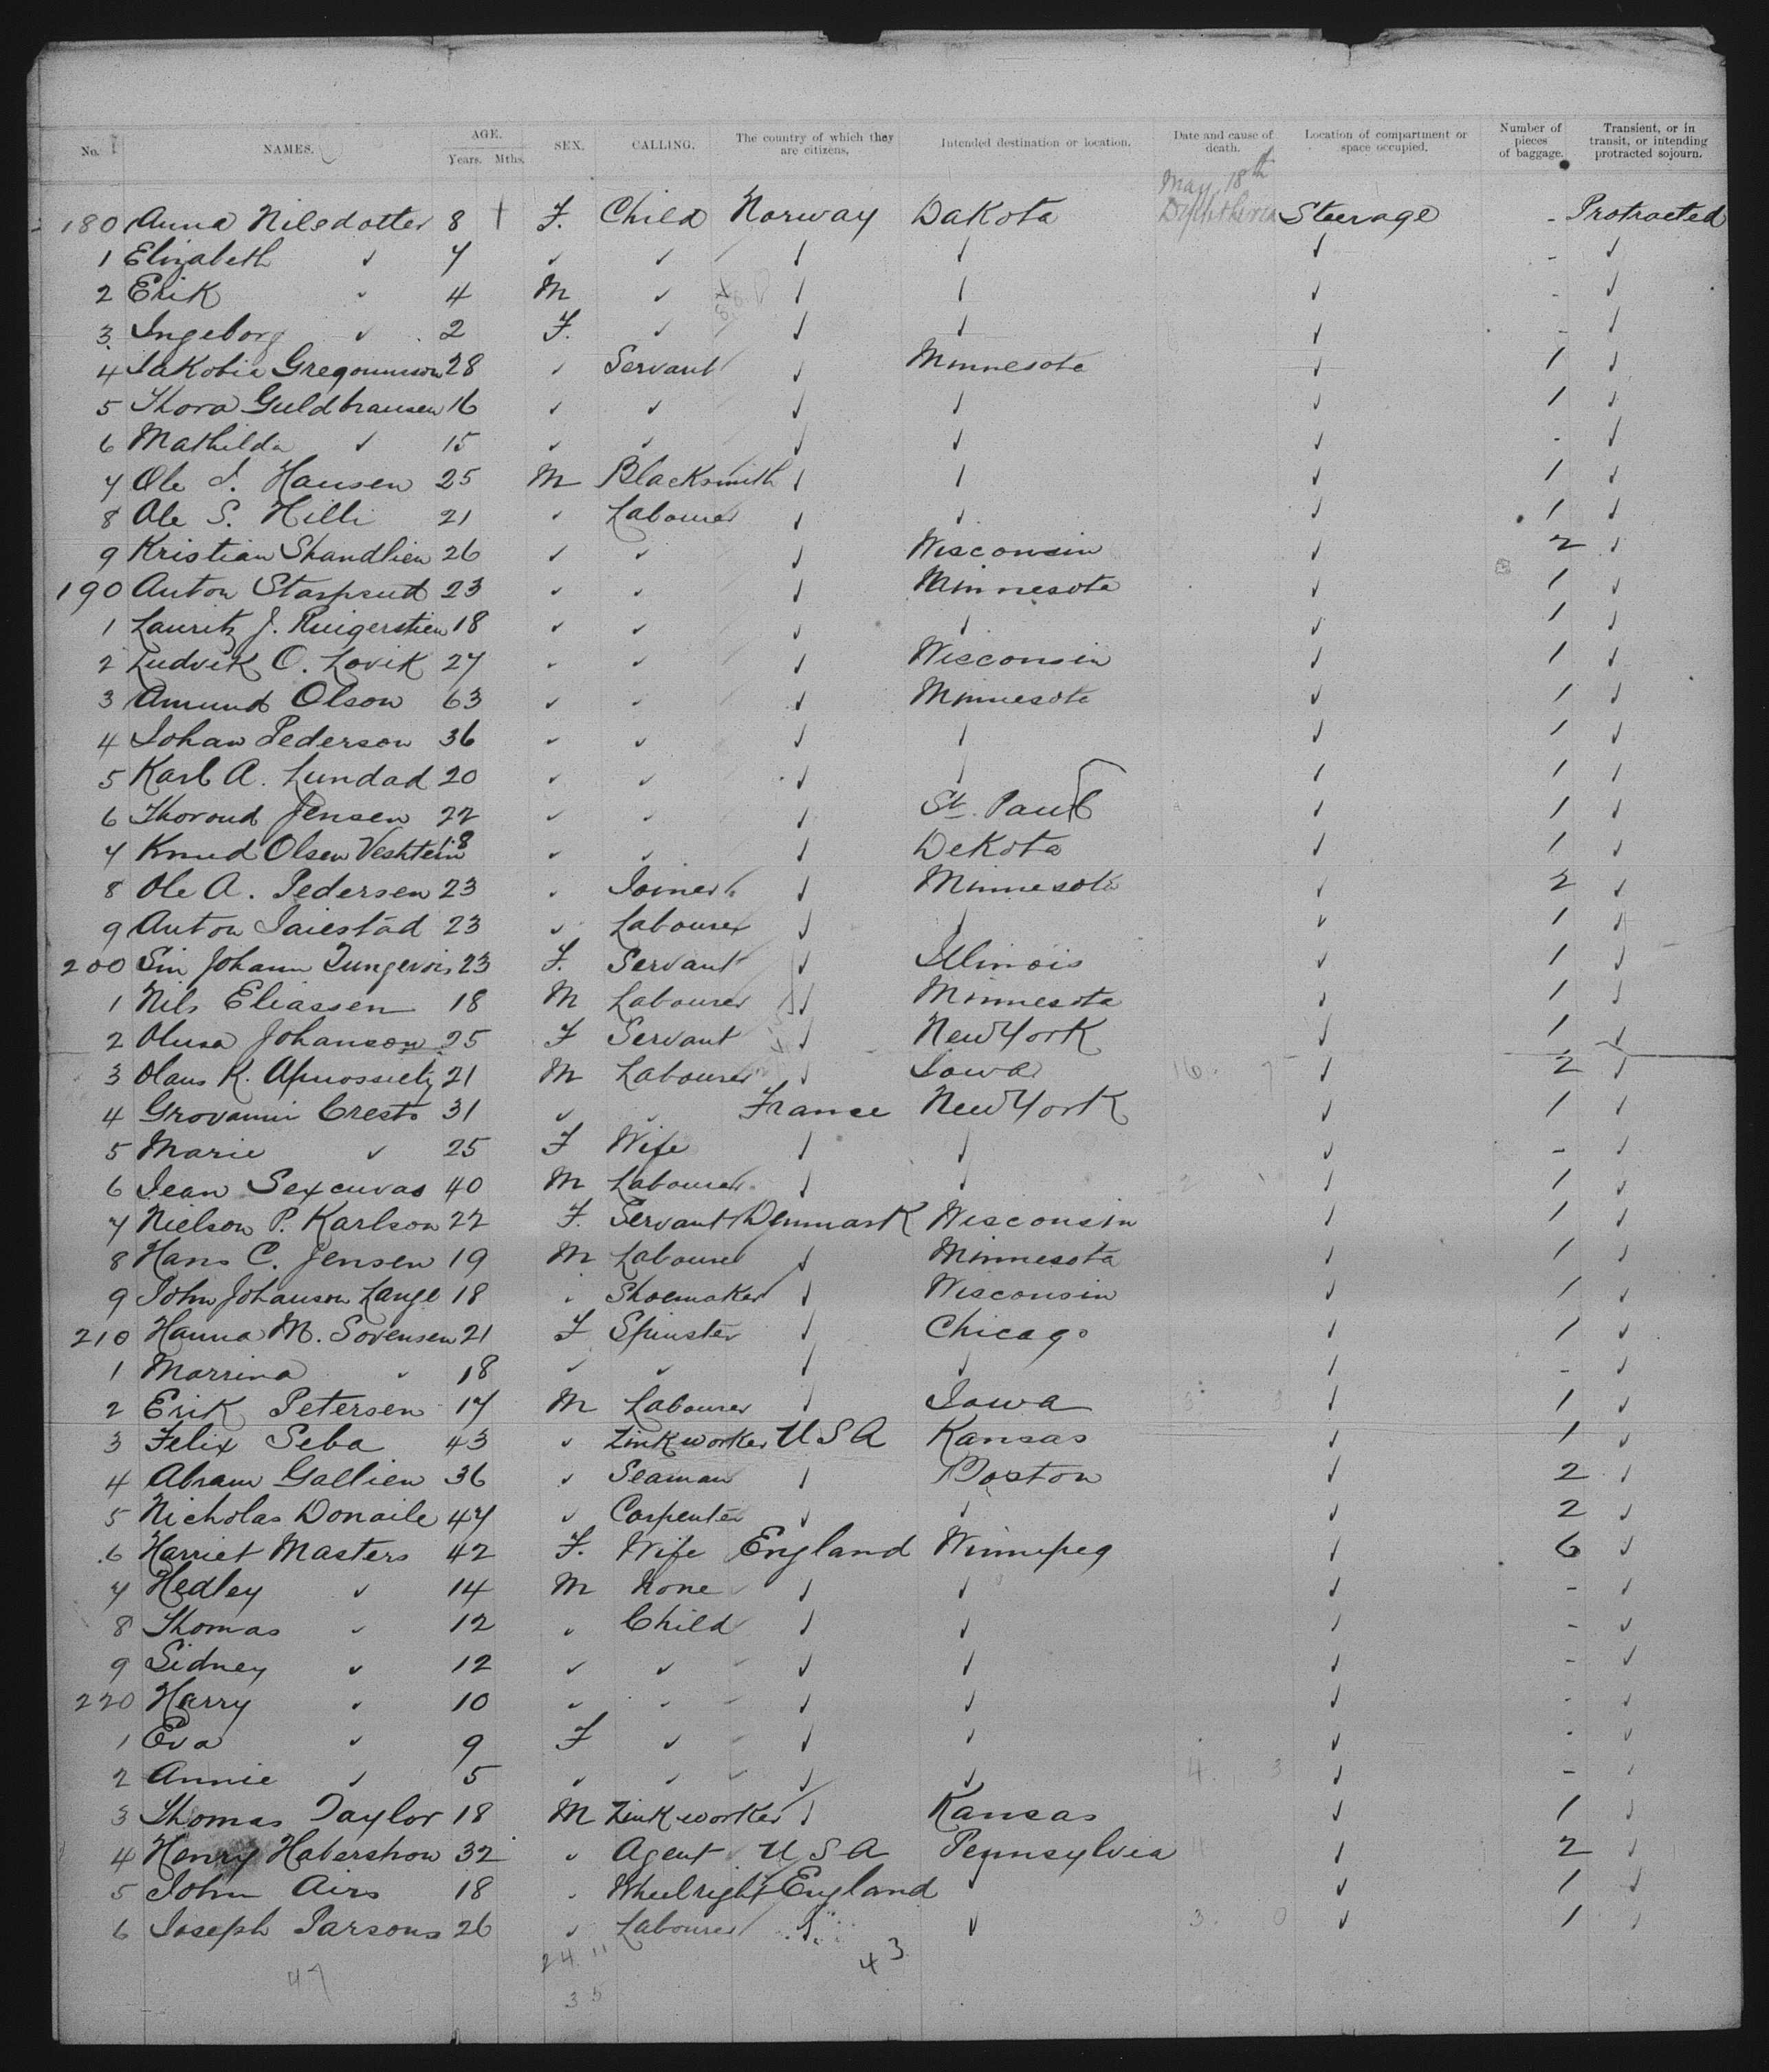 No. NAMES. AGE. Years. Mths. SEX. CALLING. The country of which they are citizens. Intended destination or location. Date and cause of death. Location of compartment or space occupied. Number of pieces of baggage. Transient, or in transit, or intending protracted sojourn.
May 18th
180 Anna Nilsdotter 8 F. Child Norway Dakota Diphtheria Steerage - Protracted
1 Elizabeth ✓ 7 ✓ ✓ ✓ ✓ ✓ - ✓
2 Erik ✓ 4 M ✓ ✓ ✓ ✓ - ✓
3 Ingeborg ✓ 2 F. ✓ ✓ ✓ ✓ - ✓
4 Jakobia 28 ✓ Servant ✓ Minnesota ✓ 1 ✓
5 Thora Guldbransen 16 ✓ ✓ ✓ ✓ ✓ 1 ✓
6 Mathilda ✓ 15 ✓ ✓ ✓ ✓ ✓ - ✓
7 Ole J. Hansen 25 M Blacksmith ✓ ✓ ✓ 1 ✓
8 Ole S. Hilli 21 ✓ Labourer ✓ ✓ ✓ 1 ✓
9 Kristian Shandlien 26 ✓ ✓ ✓ Wisconsin ✓ 2 ✓
190 Anton 23 ✓ ✓ ✓ Minnesota ✓ 1 ✓
1 Lauritz J. 18 ✓ ✓ ✓ ✓ ✓ 1 ✓
2 Ludvik O. Lovik 27 ✓ ✓ ✓ Wisconsin ✓ 1 ✓
3 Amund Olson 63 ✓ ✓ ✓ Minnesota ✓ 1 ✓
4 Johan Pederson 36 ✓ ✓ ✓ ✓ ✓ 1 ✓
5 Karl A. Lundad 20 ✓ ✓ ✓ ✓ ✓ 1 ✓
6 Thoroud Jensen 22 ✓ ✓ ✓ St. Paul ✓ 1 ✓
7 Knud Olsen Veshtein 18 ✓ ✓ ✓ DeKota ✓ 1 ✓
8 Ole A. Pedersen 23 ✓ Joiner ✓ Minnesota ✓ 2 ✓
9 Anton Saiestad 23 ✓ Labourer ✓ ✓ ✓ 1 ✓
200 Johann 23 F. Servant ✓ Illinois ✓ 1 ✓
1 Nils Eliassen 18 M Labourer ✓ Minnesota ✓ 1 ✓
2 Olina Johanson 25 F Servant ✓ New York ✓ 1 ✓
3 Olaus K. 21 M Labourer ✓ Iowa ✓ 2 ✓
4 Grovanni Cresto 31 ✓ ✓ France New York ✓ 1 ✓
5 Marie ✓ 25 F Wife ✓ ✓ ✓ - ✓
6 Jean Sexcuvas 40 M Labourer ✓ ✓ ✓ 1 ✓
7 Nielson P. Karlson 22 F. Servant Denmark Wisconsin ✓ 1 ✓
8 Hans C. Jensen 19 M Labourer ✓ Minnesota ✓ 1 ✓
9 John Johanson Lange 18 ✓ Shoemaker ✓ Wisconsin ✓ 1 ✓
210 Hanna M. Sorensen 21 F Spinster ✓ Chicago ✓ 1 ✓
1 Marrina ✓ 18 ✓ ✓ ✓ ✓ ✓ - ✓
2 Erik Petersen 17 M Labourer ✓ Iowa ✓ 1 ✓
3 Felix Seba 43 ✓ Zinkworker U S A Kansas ✓ 1 ✓
4 Abram Gallien 36 ✓ Seaman ✓ Boston ✓ 2 ✓
5 Nicholas Donaile 47 ✓ Carpenter ✓ ✓ ✓ 2 ✓
6 Harriet Masters 42 F. Wife England Winnipeg ✓ 6 ✓
7 Hedley ✓ 14 M None ✓ ✓ ✓ - ✓
8 Thomas ✓ 12 ✓ Child ✓ ✓ ✓ - ✓
9 Sidney ✓ 12 ✓ ✓ ✓ ✓ ✓ - ✓
220 Harry ✓ 10 ✓ ✓ ✓ ✓ ✓ - ✓
1 Eva ✓ 9 F ✓ ✓ ✓ ✓ - ✓
2 Annie ✓ 5 ✓ ✓ ✓ ✓ 4. 3 ✓ - ✓
3 Thomas Taylor 18 M Zinkworker ✓ Kansas ✓ 1 ✓
4 Henry Habershow 32 ✓ Agent U S A Pennsylvia ✓ 2 ✓
5 John Airs 18 ✓ Wheelright England ✓ ✓ 1 ✓
6 Joseph Parsons 26 ✓ Labourer ✓ ✓ 3. 0 ✓ 1 ✓
24 11 43
47
35